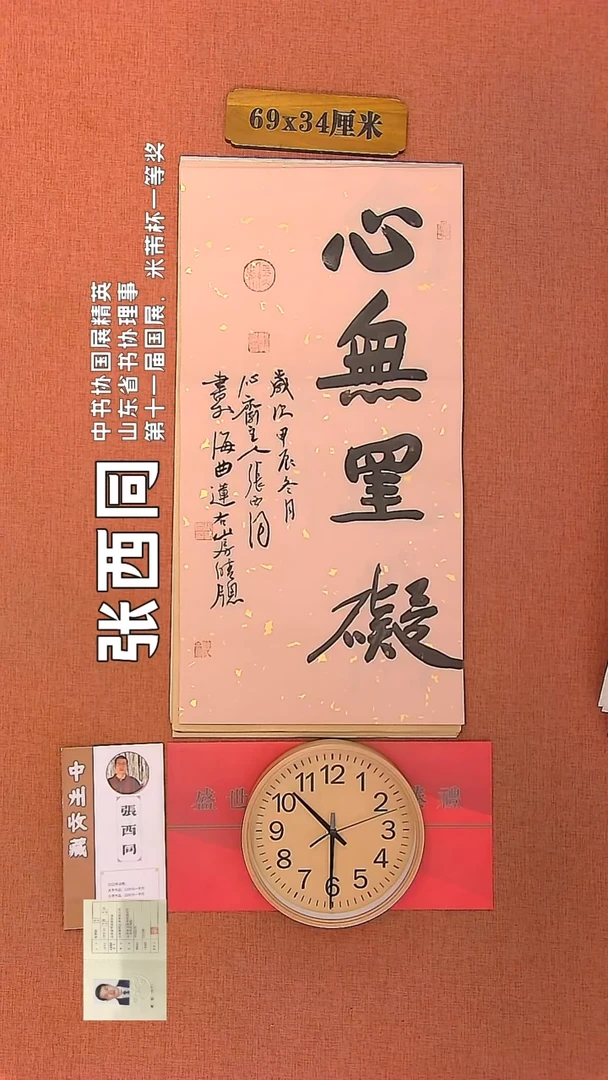 69x34厘米
心無罣礙
歲次甲辰冬月
心齋主人張西同
書於海曲蓮石山房晴牕
张西同
中书协国展精英
山东省书协理事
第十一届国展，米芾杯一等奖
張西同
盛世
12
1
2
3
4
5
6
7
8
9
10
11